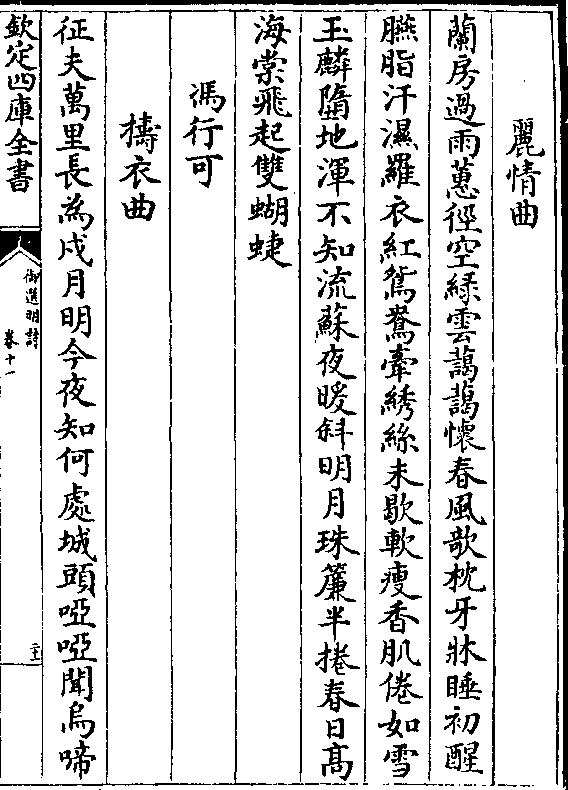 麗情曲
蘭房過雨蕙徑空緑雲藹藹懷春風欹枕牙牀睡初醒
臙脂汗濕羅衣紅鴛鴦牽綉絲未歇軟瘦香肌倦如雪
玉麟墮地渾不知流蘇夜暖斜明月珠簾半捲春日髙
海棠飛起雙蝴蜨
馮行可
擣衣曲
征夫萬里長為戍月明今夜知何處城頭啞啞聞烏啼
欽定四庫全書
御選明詩
卷十一